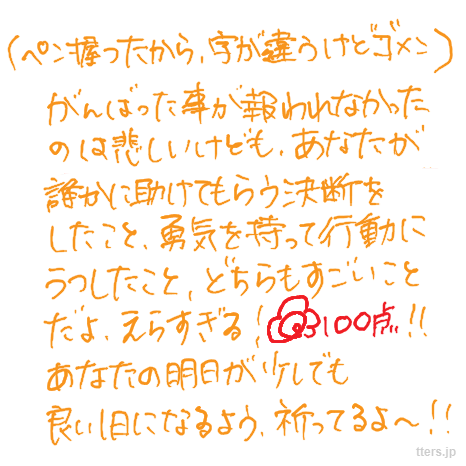 (ペン握ったから、字が違うけどゴメン)
がんばった事が報われなかった
のは悲しいけども、あなたが
誰かに助けてもらう決断を
したこと、勇気を持って行動に
うつしたこと、どちらもすごいこと
だよ、えらすぎる!100点!!
あなたの明日が少しでも
良い1日になるよう、祈ってるよ〜!!
tters.jp